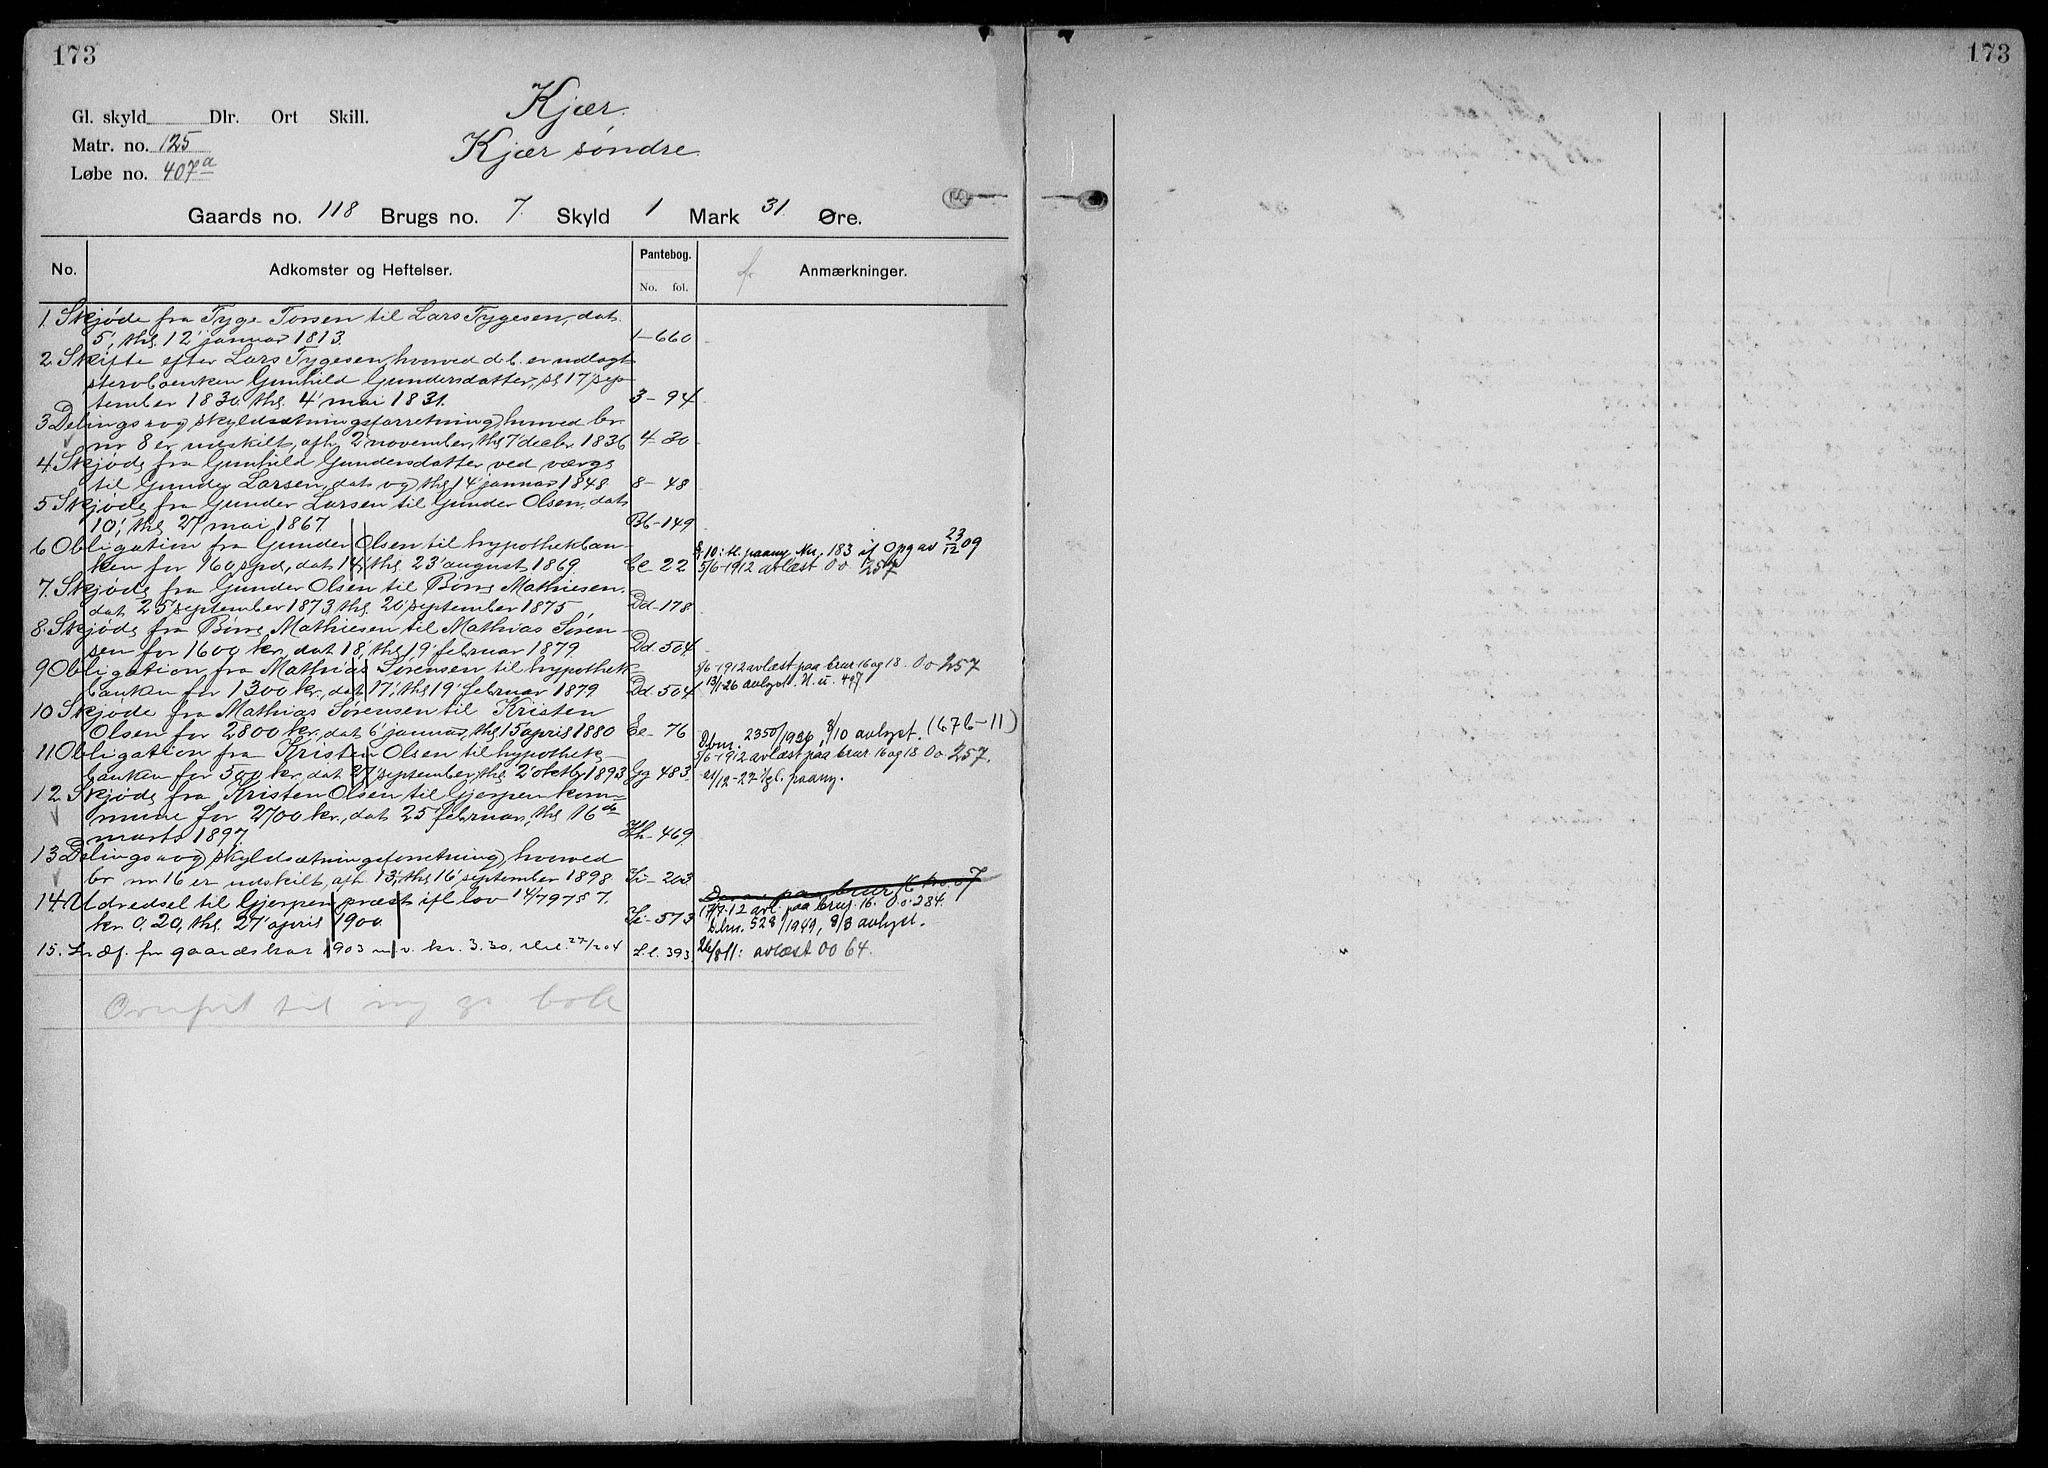 173
Gl. skyld Dlr. Ort Skill.
Matr. no. 125
Løbe no. 407a
Kjær.
Kjær søndre.
Gaards no. 118 Brugs no. 7. Skyld 1 Mark 31. Øre.
No. Adkomster og Heftelser. Pantebog. No. fol. Anmærkninger.
1. Skjøde fra Tyge Torsen til Lars Tygesen, dat.
5', thl. 12' januar 1813. 1-660
2. Skifte efter Lars Tygesen, hvorved d. b. er udlagt
stervboenken Gunhild Gundersdatter, 17' sep-
tember 1830, thl. 4' mai 1831. 3-94
3. Delings og skyldsætningsforretning, hvorved br.
nr 8 er udskilt, afh. 2' november, thl. 7' decbr. 1836 4-30
4. Skjøde fra Gunhild Gundersdatter ved værge
til Gunder Larsen, dat. og thl. 14' januar 1848 8-48
5. Skjøde fra Gunder Larsen til Gunder Olsen, dat.
10', thl. 27' mai 1867. Bb-149
6. Obligation fra Gunder Olsen til hypothekban-
ken for 160 spd., dat. 14', thl. 23' august 1869. Cc-22
10: tl. paany Nr. 183 if Opg av 23/12 09
5/6-1912 avlæst Oo 257
7. Skjøde fra Gunder Olsen til Børre Mathiesen,
dat. 25' september 1873, thl. 20' september 1875 Dd-178
8. Skjøde fra Børre Mathiesen til Mathias Søren-
sen for 1600 kr., dat. 18', thl. 19' februar 1879. Dd. 504.
9. Obligation fra Mathias Sørensen til hypothek-
banken for 1300 kr., dat. 17', thl. 19' februar 1879. Dd. 504
5/6-1912 avlæst paa brnr 16 og 18. Oo 257
13/1-26 avlyst. N. u. 497.
10. Skjøde fra Mathias Sørensen til Kristen
Olsen for 2800 kr., dat. 6' januar, thl. 15' april 1880 Ee-76
11. Obligation fra Kristen Olsen til hypothek-
banken for 500 kr., dat. 27' september, thl. 2' oktbr. 1893 Gg 483.
Dbnr. 2350/1936, 8/10 avlyst. (676-11)
5/6-1912 avlæst paa brnr 16 og 18. Oo 257.
21/12-22 tgl. paany.
12. Skjøde fra Kristen Olsen til Gjerpen kom-
mune for 2700 kr., dat. 25' februar, thl. 16de
marts 1897. Hh-469
13. Delings og skyldsætningsforretning, hvorved
br. nr 16 er udskilt, afh. 13', thl. 16' september 1898. Ii-203
14. Udredsel til Gjerpen præst ifl. lov 14/7 97 § 7.
kr. 0,20, thl. 27' april 1900. Ii-573
paa brnr 16
17/9.12 avl. paa brnr. 16. Oo 284.
Dbnr. 528/1949, 8/3 avlyst.
15. Kræf. for gaardskar 1903 kr. 3.30, 22/2 04 L.l. 393.
26/8 11: avlæst Oo 64.
Overført til ny gr bok
173